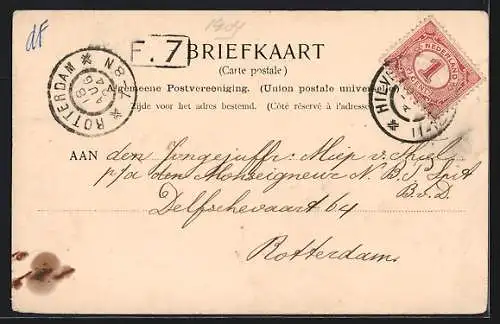 df
1904
F.7
BRIEFKAART
(Carte postale)
Algemeene Postvereeniging. (Union postale universelle)
Zijde voor het adres bestemd. (Côté réservé à l'adresse)
ROTTERDAM
NEDERLAND
1
AAN den Jongejuffr: Miep v. Spiel
p/a den
N. B. J. Spit
B.v.D.
Delfschevaart 64
Rotterdam